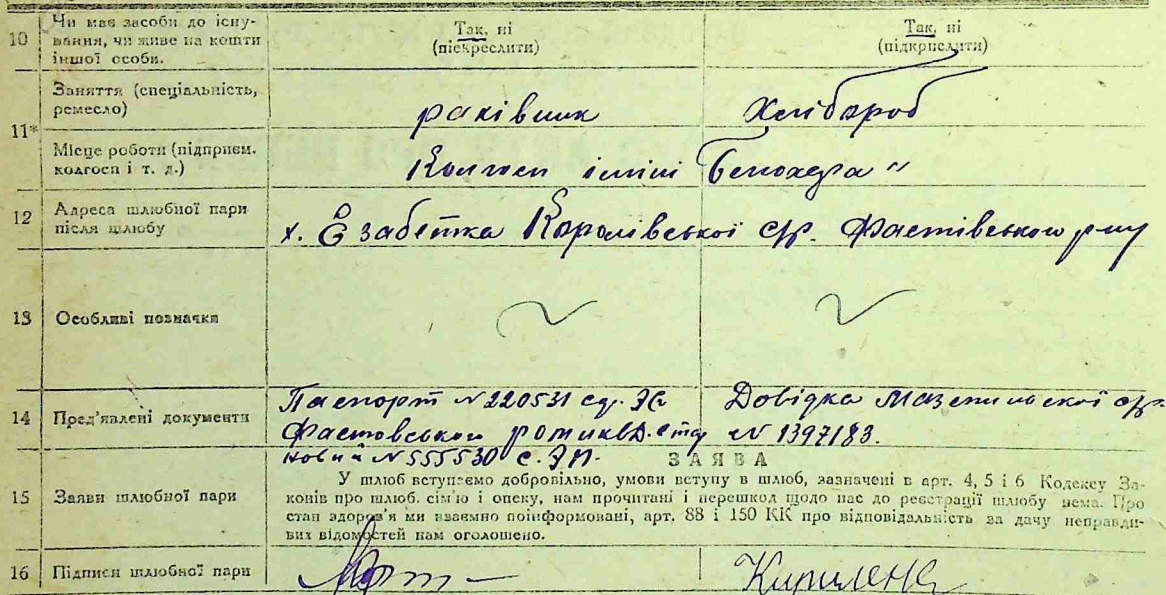 10 Чи має засоби до існу-
вання, чи живе на кошти
іншої особи.
Так, ні
(підкреслити)
Так, ні
(підкреслити)
11* Заняття (спеціальність,
ремесло)
рахівник
Хлібороб
Місце роботи (підприєм.
колгосп і т. д.)
Колгосп імені
12 Адреса шлюбної пари
після шлюбу
х. Єзабетка Королівської с/р. Фастівського р-ну
13 Особливі позначки
14 Пред'явлені документи
Паспорт № 220531
Фастовського
новий № 555530
Довідка с/р.
№ 1397183.
15 Заяви шлюбної пари
ЗАЯВА
У шлюб вступаємо добровільно, умови вступу в шлюб, зазначені в арт. 4, 5 і 6 Кодексу За-
конів про шлюб, сім'ю і опеку, нам прочитані і перешкод щодо нас до реєстрації шлюбу нема. Про
стан здоров'я ми взаємно поінформовані, арт. 88 і 150 КК про відповідальність за дачу неправди-
вих відомостей нам оголошено.
16 Підписи шлюбної пари
Кириленк